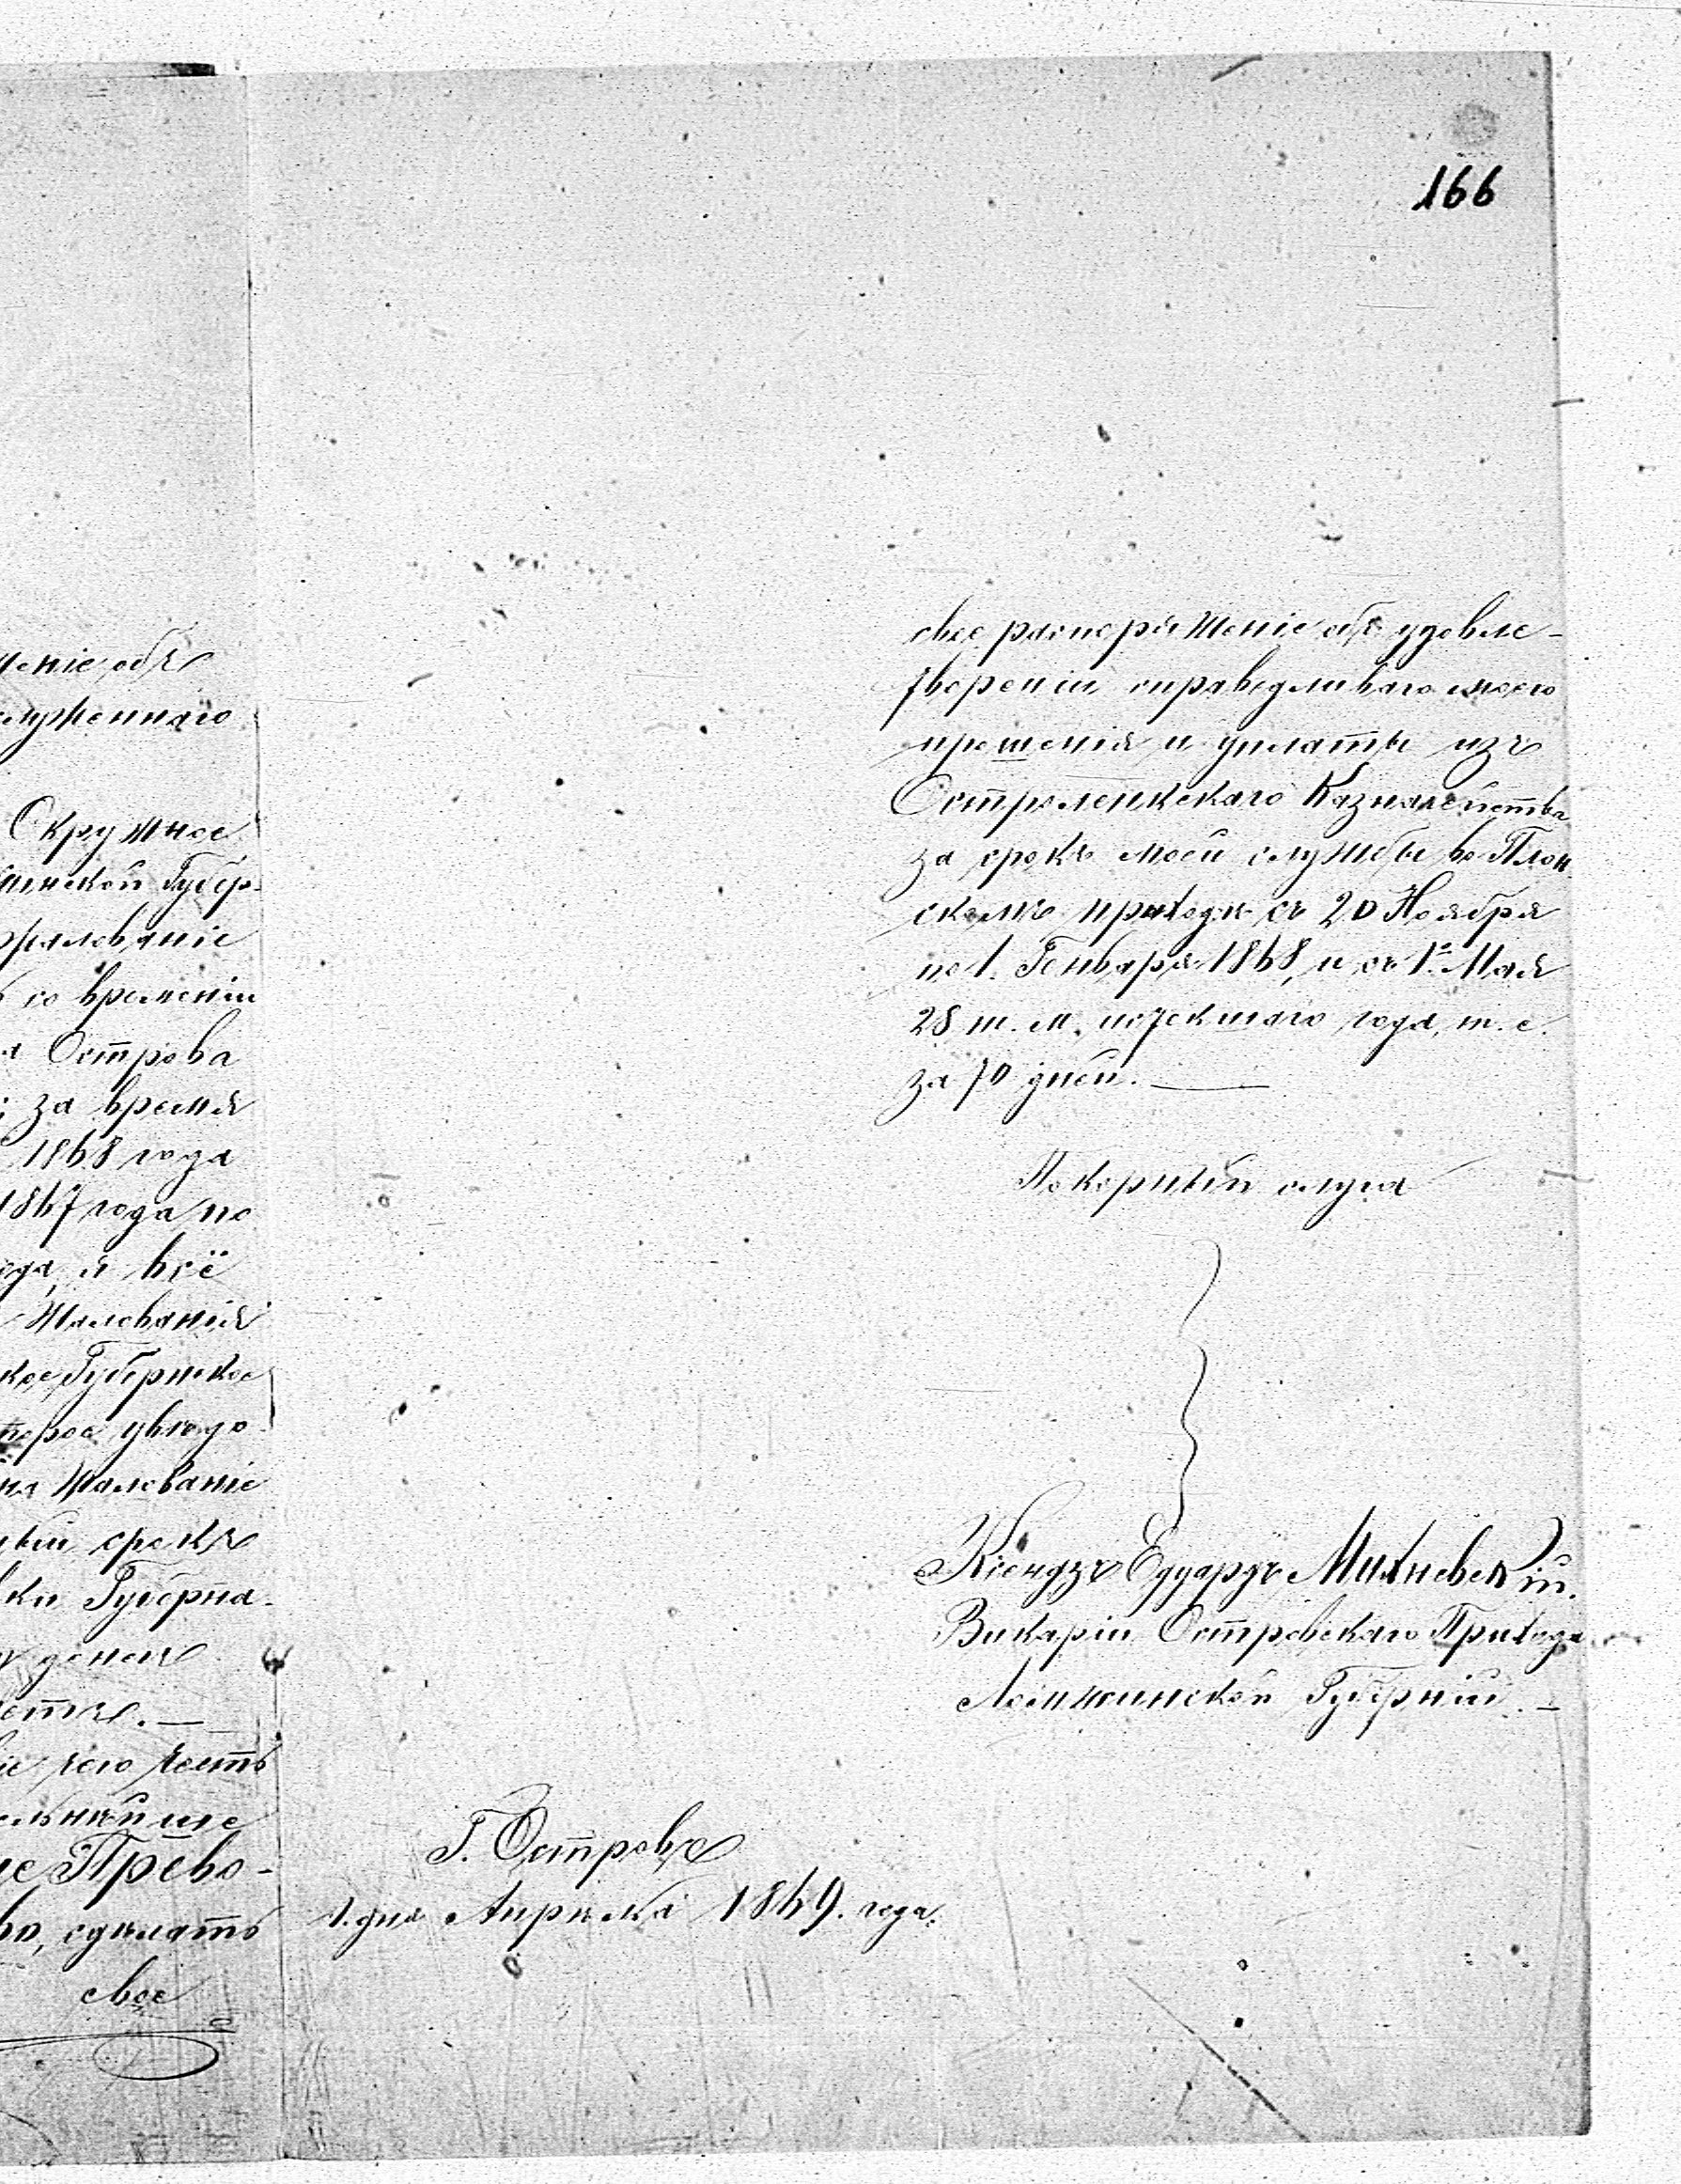 166
ніе объ
служеннаго
Окружное
инской Губер-
жалованіе
со времени
Острова
за время
1868 года
1867 года по
года, я всё
Жалованія
кое Губернское
торое увѣдо-
на Жалованіе
срокъ
Губерна-
денегъ
чего честь
Прево-
во, сдѣлать
свое
свое распоряженіе объ удовле-
твореніи справедливаго моего
прошенія и уплаты изъ
Остроленкскаго Казначейства
за срокъ моей службы во Плон-
скомъ приходѣ съ 20 Ноября
по 1. Генваря 1868, и съ 1го Мая
28 т. м. истекшаго года, т. е.
за 70 дней. —
Покорный слуга
Ксендзъ Едуардъ Михневскій.
Викарій Островскаго Прихода
Ломжинской Губерніи. —
Г. Островъ
1. дня Апрѣля 1869. года.